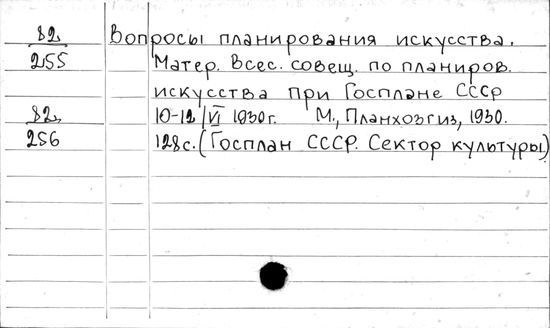 82 Вопросы планирования искусства.
255 Матер. Всес. совещ. по планиров.
искусства при Госплане СССР
82 10-12/VI 1930г. М., Планхозгиз, 1930.
256 128с. (Госплан СССР. Сектор культуры)